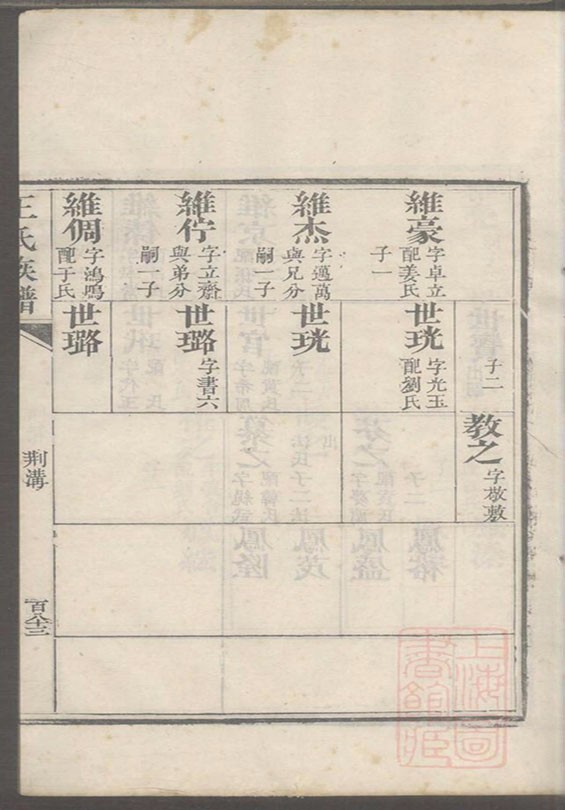 子二
教之
字敬敷
維豪
字卓立
配姜氏
子一
世珖
字光玉
配劉氏
維杰
字邁萬
與兄分
嗣一子
世珖
維佇
字立齋
與弟分
嗣一子
世璐
字書六
維倜
字鴻鳴
配于氏
世璐
王氏族譜
荆溝
百八十三
上海圖書館藏